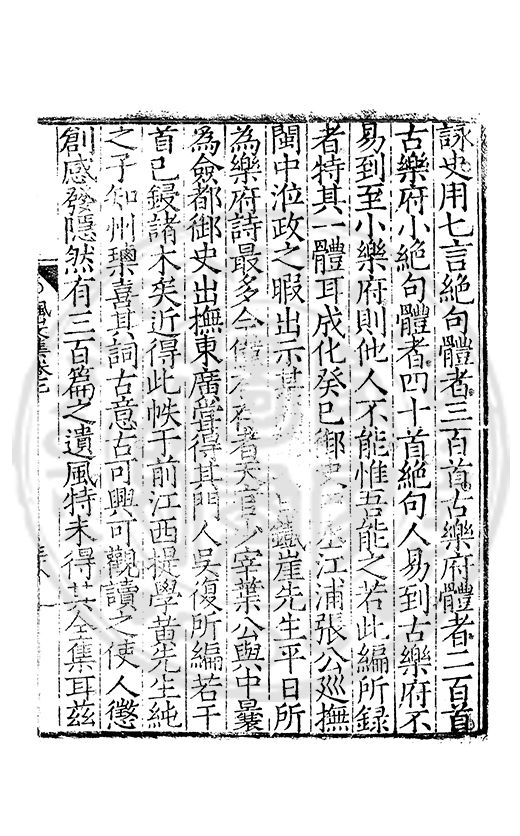 詠史用七言絕句體者三百首古樂府體者二百首
古樂府小絕句體者四十首絕句人易到古樂府不
易到至小樂府則他人不能惟吾能之若此編所錄
者特其一體耳成化癸巳御史江浦張公廵撫
閩中涖政之暇出示某鐵崖先生平日所
為樂府詩最多今存者天官少宰葉公與中曩
為僉都御史出撫東廣嘗得其門人吳復所編若干
首已鋟諸木矣近得此帙于前江西提學黄先生純
之子知州瓍喜其詞古意古可興可觀讀之使人懲
創感發隱然有三百篇之遺風特未得其全集耳兹